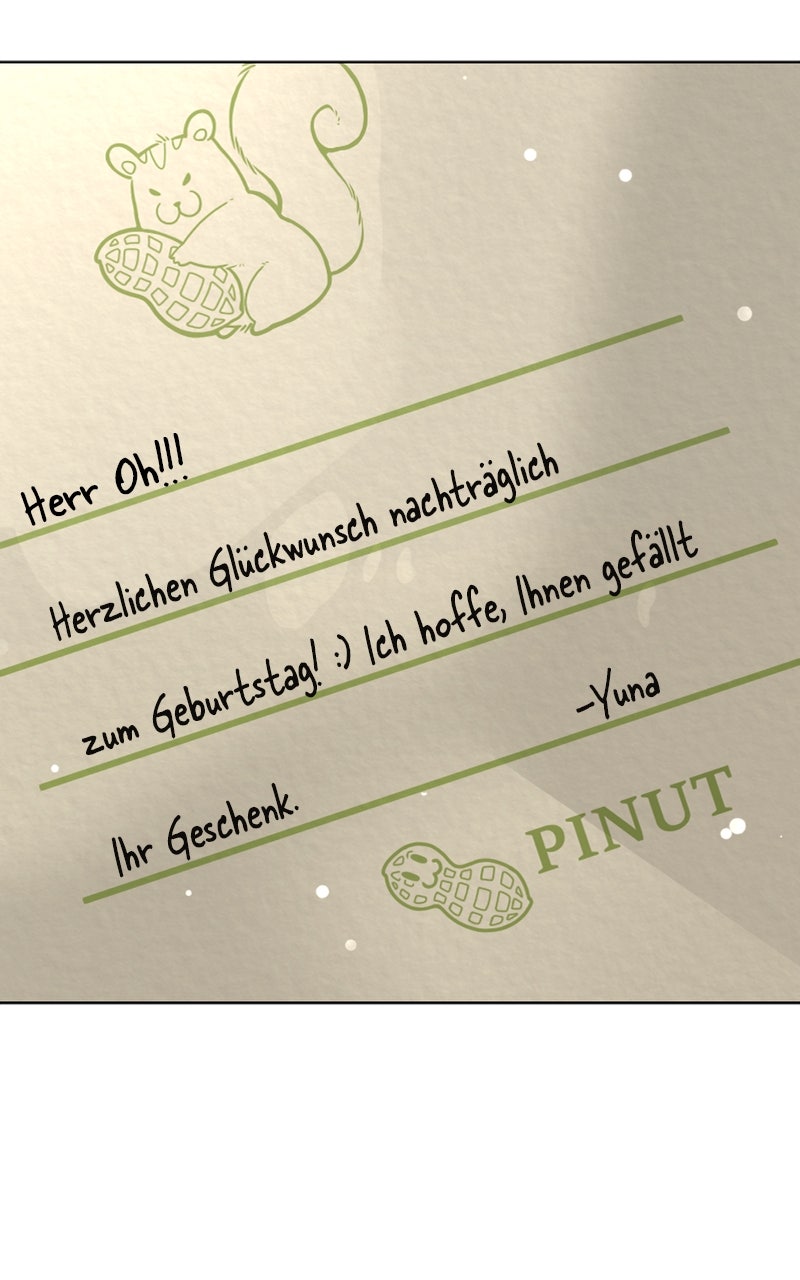 Herr Oh!!!
Herzlichen Glückwunsch nachträglich
zum Geburtstag! :) Ich hoffe, Ihnen gefällt
Ihr Geschenk.
–Yuna
PINUT